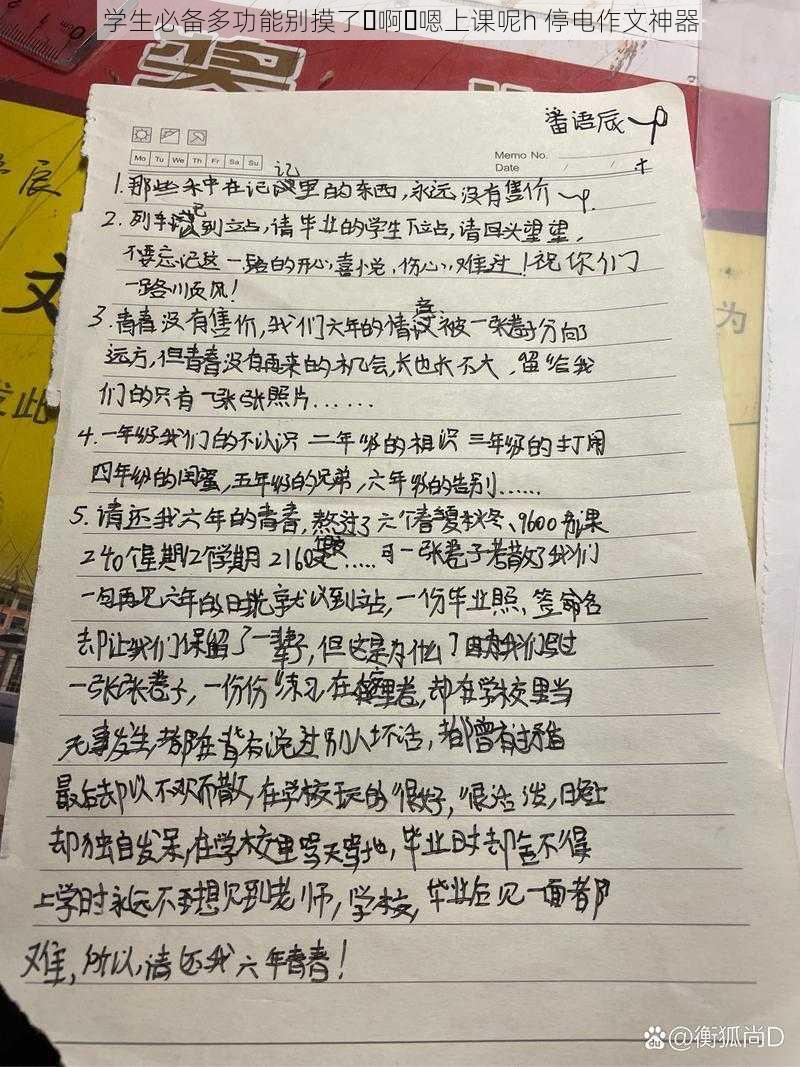 学生必备多功能别摸了啊嗯上课呢h 停电作文神器
番语辰
Mo Tu We Th Fr Sa Su
Memo No.
Date / /
记
1.那些年中在记里的东西,永远没有售价
2.列车已到立占,请毕业的学生下立占,请回头望望,
不要忘记这一路的开心,喜悦,伤心,难过!祝你们
一路川页风!
3.青春没有售价,我们六年的情谊被一张卷子分向
远方,但青春没有再来的机会,长也长不大,留给我
们的只有一张张照片......
4.一年级我们的不认识 二年级的相识 三年级的打闹
四年级的闺蜜,五年级的兄弟,六年级的告别......
5.请还我六年的青春,熬过了六个春夏秋冬、9600节课
240个星期12个学期 2160天.....可一张卷子若散了我们
一句再见六年的时光就以到立占,一份毕业照,签命名
却让我们保留了一辈子,但这是为什么?因为我们写过
一张张卷子,一份份练习,在里卷,却在学校里当
无事发生,都在背有说过别人坏话,都曾有过矛盾
最后却以不欢而散,在学校玩的很好,很活泼,日晚上
却独自发呆,在学校里骂天骂地,毕业时却舍不得
上学时永远不再想见到老师,学校,毕业后见一面都
难,所以,请还我六年青春!
为
文
发此
辰
@衡狐尚D